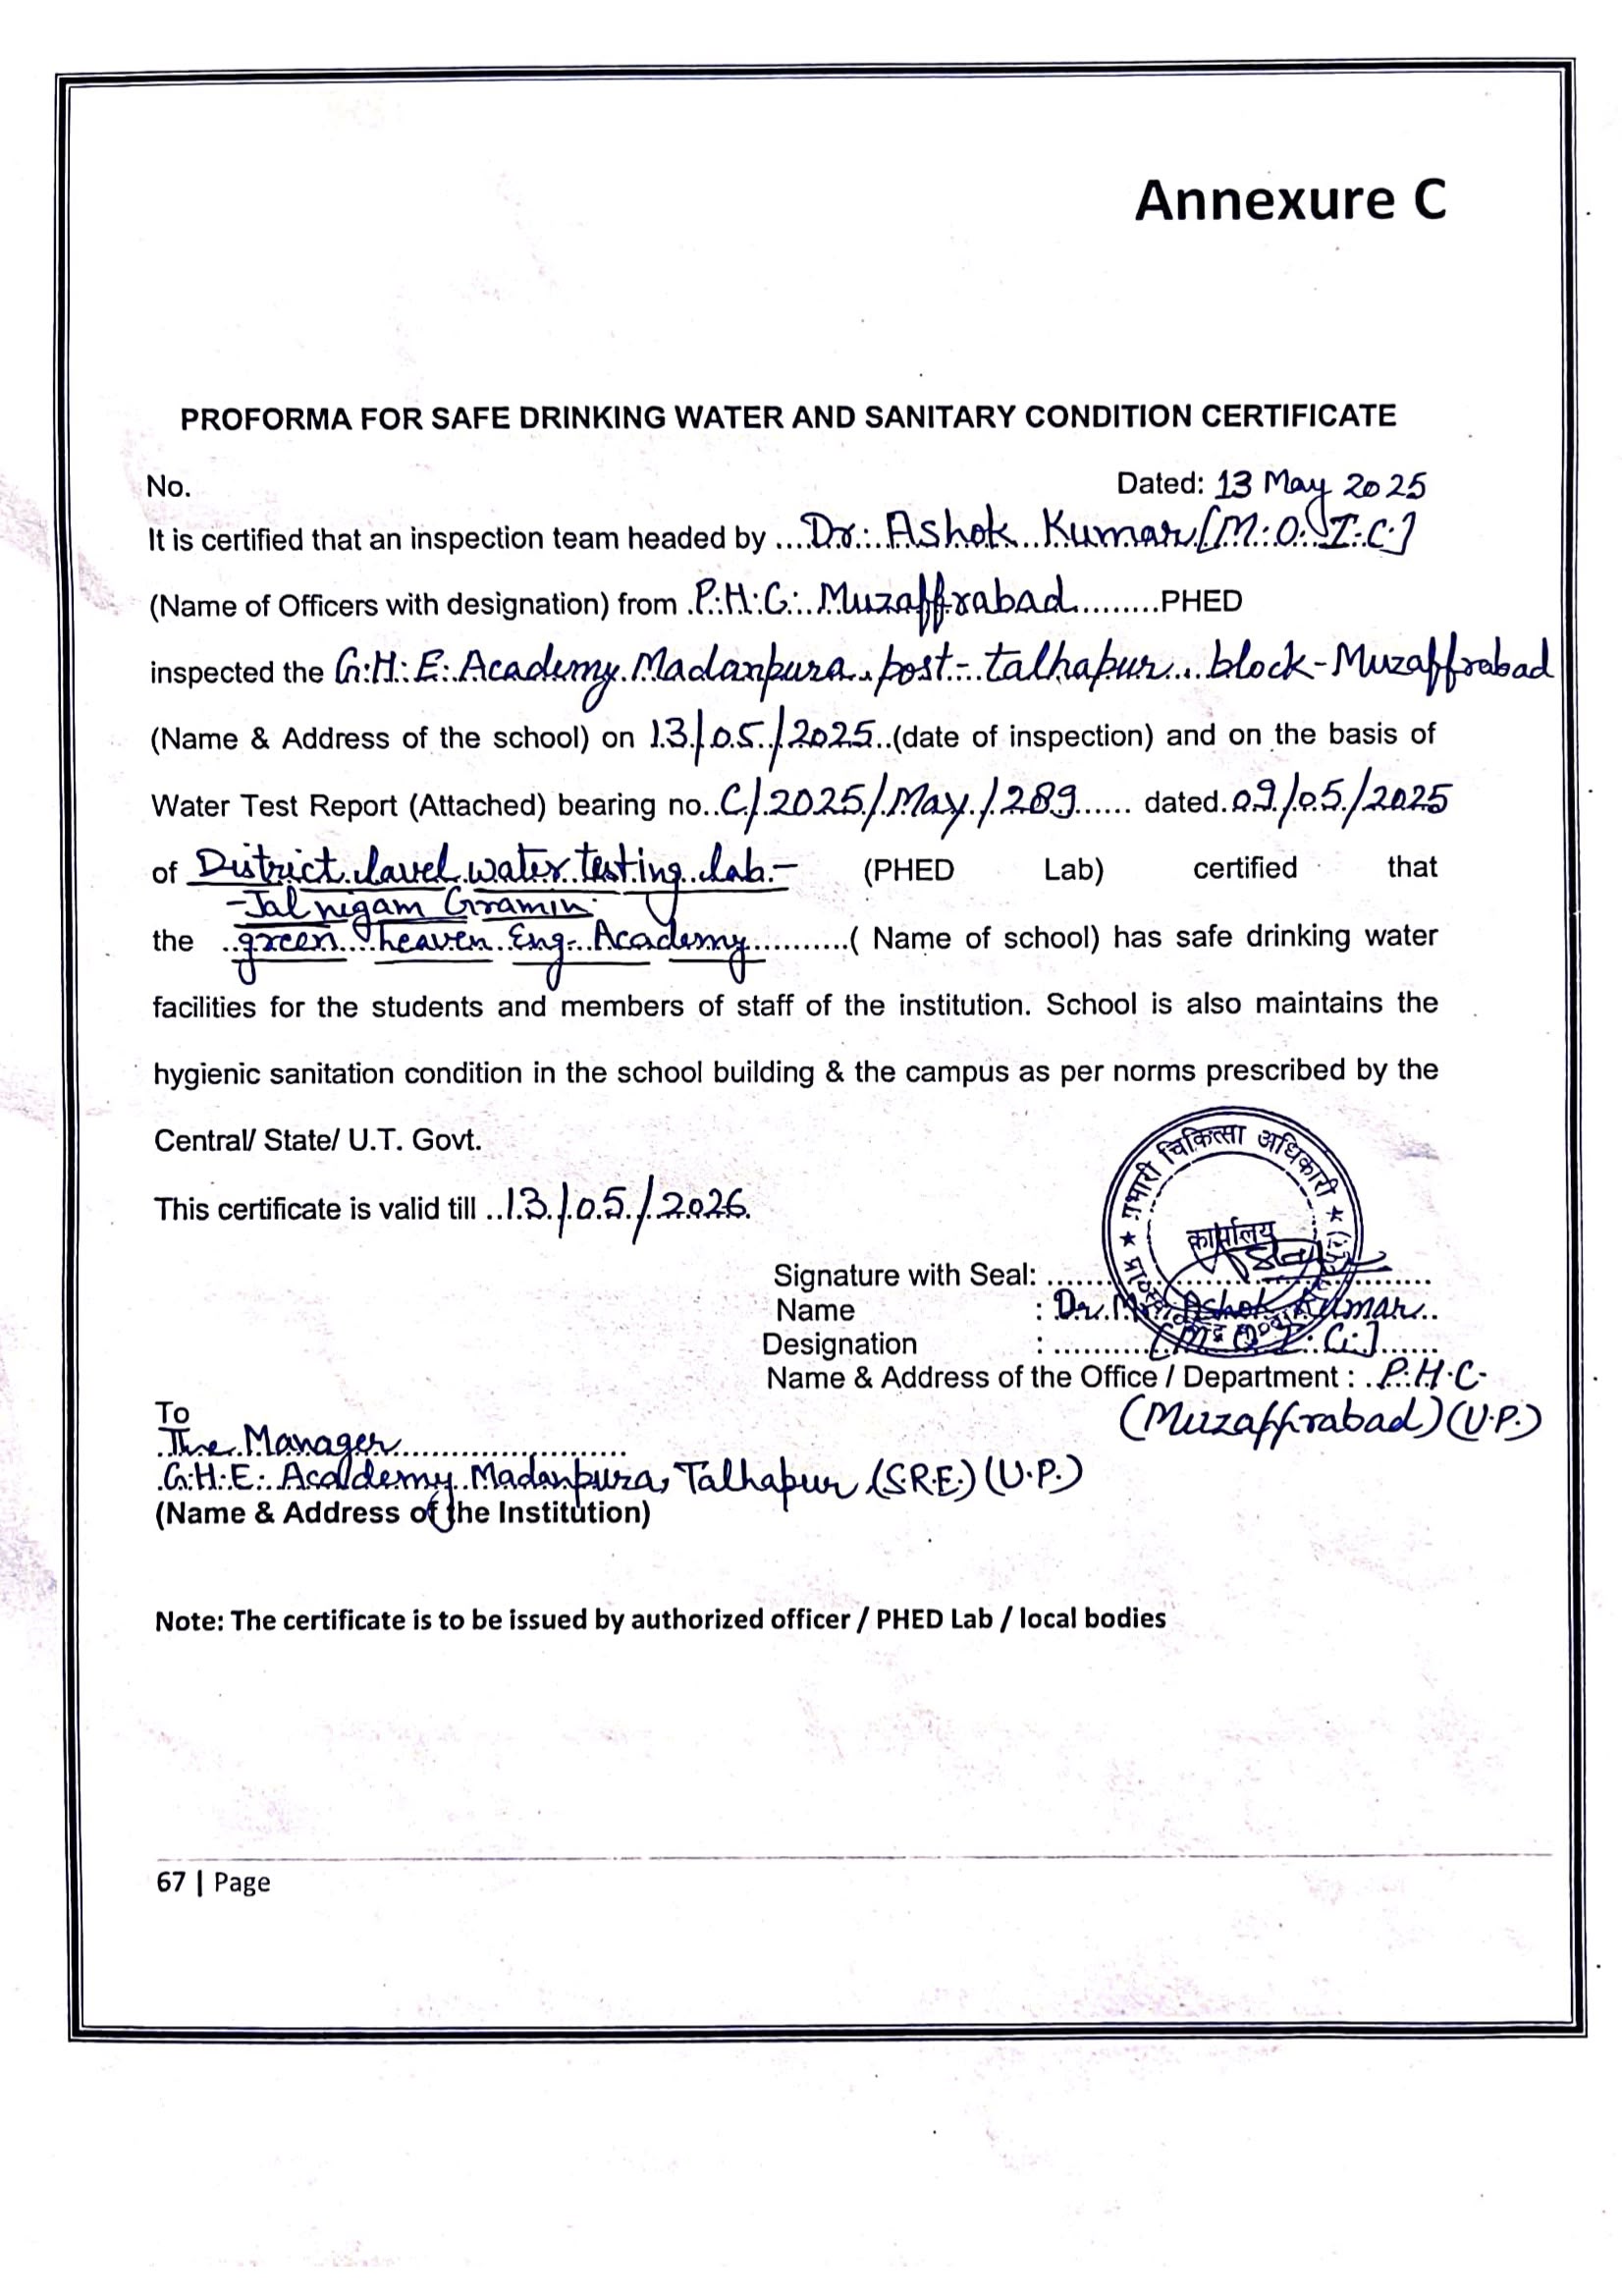 Annexure C
PROFORMA FOR SAFE DRINKING WATER AND SANITARY CONDITION CERTIFICATE
No. Dated: 13 May 2025
It is certified that an inspection team headed by ....Dr. Ashok Kumar [M.O.I.C.]
(Name of Officers with designation) from .P.H.C. Muzaffrabad.........PHED
inspected the G.H.E. Academy Madanpura, post- talhapur block-Muzaffrabad
(Name & Address of the school) on 13/05/2025..(date of inspection) and on the basis of
Water Test Report (Attached) bearing no..C/2025/May/289...... dated.09/05/2025
of District lavel water testing lab.- (PHED Lab) certified that
-Jal nigam Gramin.
the ..green heaven Eng. Academy..........( Name of school) has safe drinking water
facilities for the students and members of staff of the institution. School is also maintains the
hygienic sanitation condition in the school building & the campus as per norms prescribed by the
Central/ State/ U.T. Govt.
This certificate is valid till ..13/05/2026.
चिकित्सा अधिकारी
कार्यालय
Signature with Seal: ........
Name : Dr. Ashok Kumar..
Designation : ..........[M.O.I.C.]......
Name & Address of the Office / Department : .P.H.C.
(Muzaffrabad) (U.P.)
To
The Manager......................
G.H.E. Acaldemy Madanpura, Talhapur (S.R.E.) (U.P.)
(Name & Address of the Institution)
Note: The certificate is to be issued by authorized officer / PHED Lab / local bodies
67 | Page